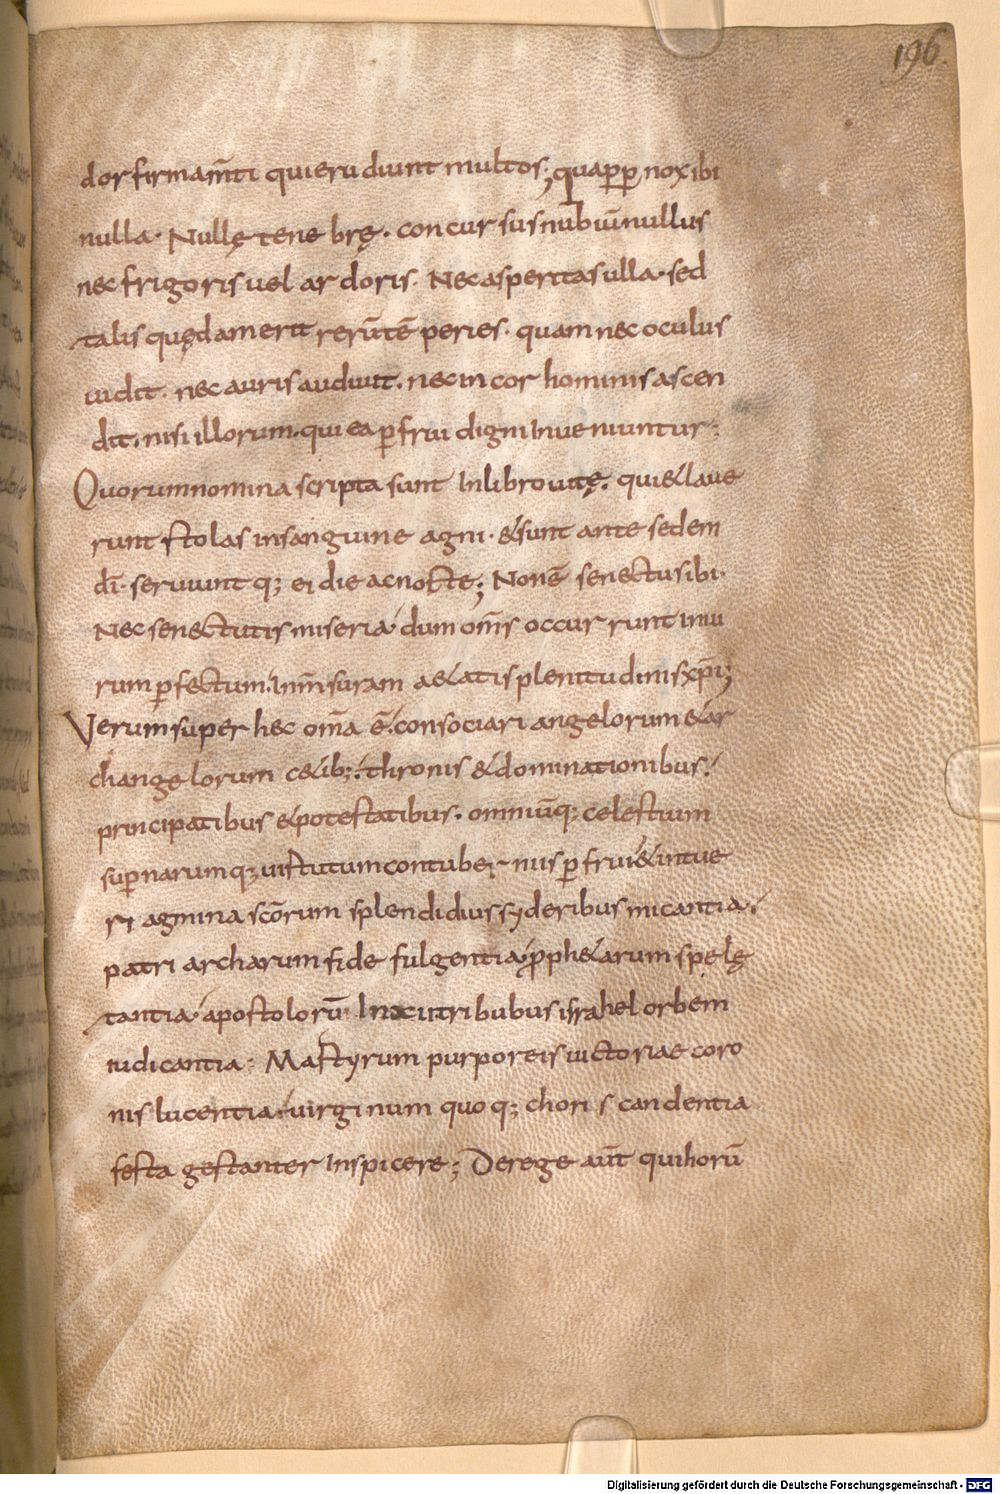 196.
dor firmam̅ti qui erudiunt multos; quapꝑ nox ibi
nulla. Nullę tenebrę. concursus nubiū nullus
nec frigoris uel ardoris. Nec asperitas ulla. sed
talis quędam erit rerū tēperies. quam nec oculus
uidit. nec auris audiuit. nec in cor hominis ascen
dit. nisi illorum. qui ea ꝑfrui digni inueniuntur:
Quorum nomina scripta sunt In libro uitę. qui & laue
runt stolas in sanguine agni. & sunt ante sedem
dī. seruiunt q; ei die ac nocte; Non ē senectus ibi.
Nec senectutis miseria dum om̅s occurrunt in ui
rum ꝑfectum. In m̅suram aetatis plenitudinis xp̅i;
Verum super hec om̅a ē. consociari angelorum & ar
changelorum c&ib;. thronis & dominationibus.
principatibus & potestatibus. omniūq; celestium
suꝑnarumq; uirtutum contuberniis ꝑfrui & intue
ri agmina sc̅orum splendidius syderibus micantia.
patriarcharum fide fulgentia. proph&arum spe lę
tantia. apostolorū In xii tribubus israhel orbem
iudicantia. Martyrum purporeis uictoriae coro
nis lucentia. uirginum quoq; choris candentia
festa gestanter Inspicere; De rege aūt qui horū
Digitalisierung gefördert durch die Deutsche Forschungsgemeinschaft - DFG